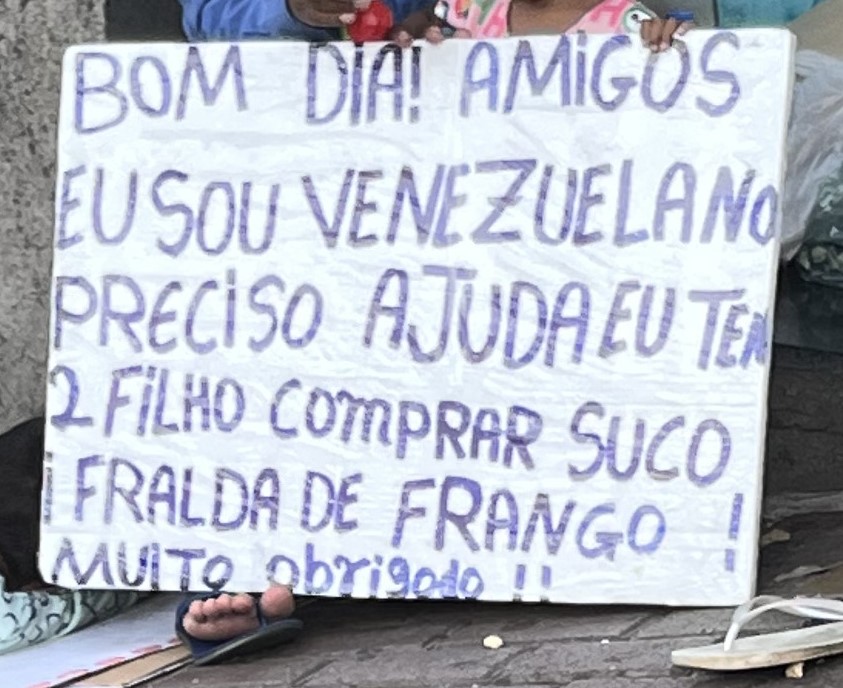 BOM DIA! AMiGOS
EU SOU VENEZUELANO
PRECiSO AJUDA EU TEM
2 FiLHO COmPRAR SUCO
! FRALDA DE FRANGO !
MUITO obrigado !!